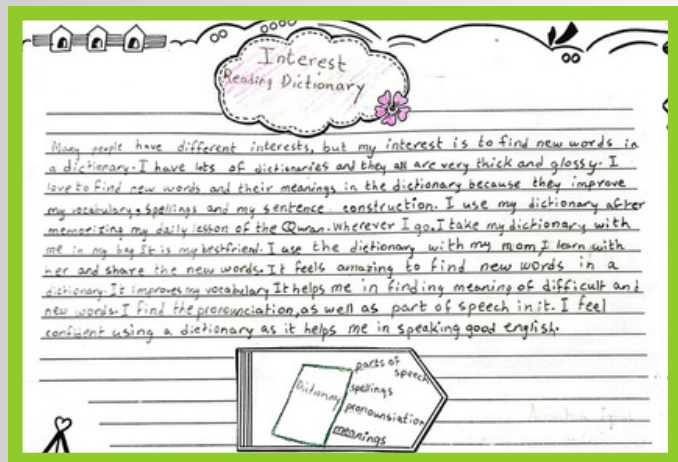 Interest
Reading Dictionary
Many people have different interests, but my interest is to find new words in
a dictionary. I have lots of dictionaries and they all are very thick and glossy. I
love to find new words and their meanings in the dictionary because they improve
my vocabulary, spellings and my sentence construction. I use my dictionary after
memorizing my daily lesson of the Quran. Wherever I go, I take my dictionary with
me in my bag It is my bestfriend. I use the dictionary with my mom, I learn with
her and share the new words. It feels amazing to find new words in a
dictionary. It improves my vocabulary It helps me in finding meaning of difficult and
new words. I find the pronounciation, as well as part of speech in it. I feel
confident using a dictionary as it helps me in speaking good english.
Dictionary
parts of
speech
spellings
pronounsiation
meanings